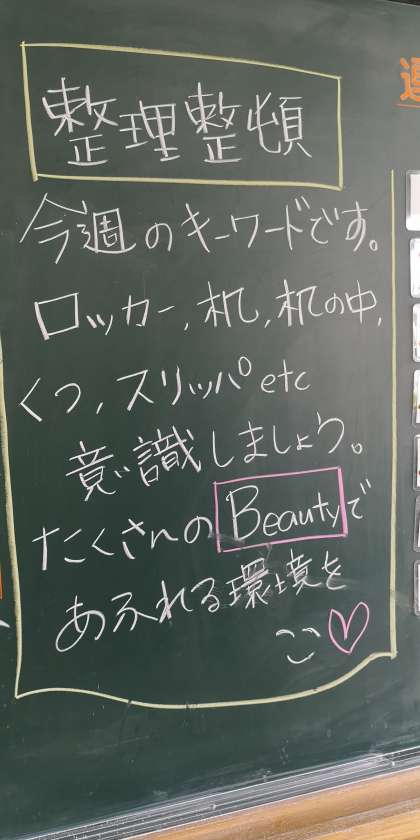 整理整頓
今週のキーワードです。
ロッカー,机,机の中,
くつ,スリッパetc
意識しましょう。
たくさんのBeautyで
あふれる環境を